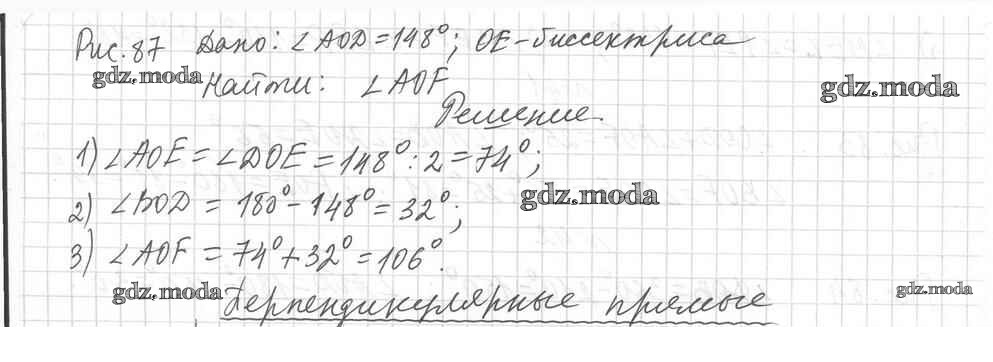 Рис. 87 Дано: ∠AOD = 148°; OE - биссектриса
gdz.moda Найти: ∠AOF gdz.moda
Решение.
1) ∠AOE = ∠DOE = 148° : 2 = 74°;
2) ∠BOD = 180° - 148° = 32°; gdz.moda
3) ∠AOF = 74° + 32° = 106°.
gdz.moda Перпендикулярные прямые gdz.moda